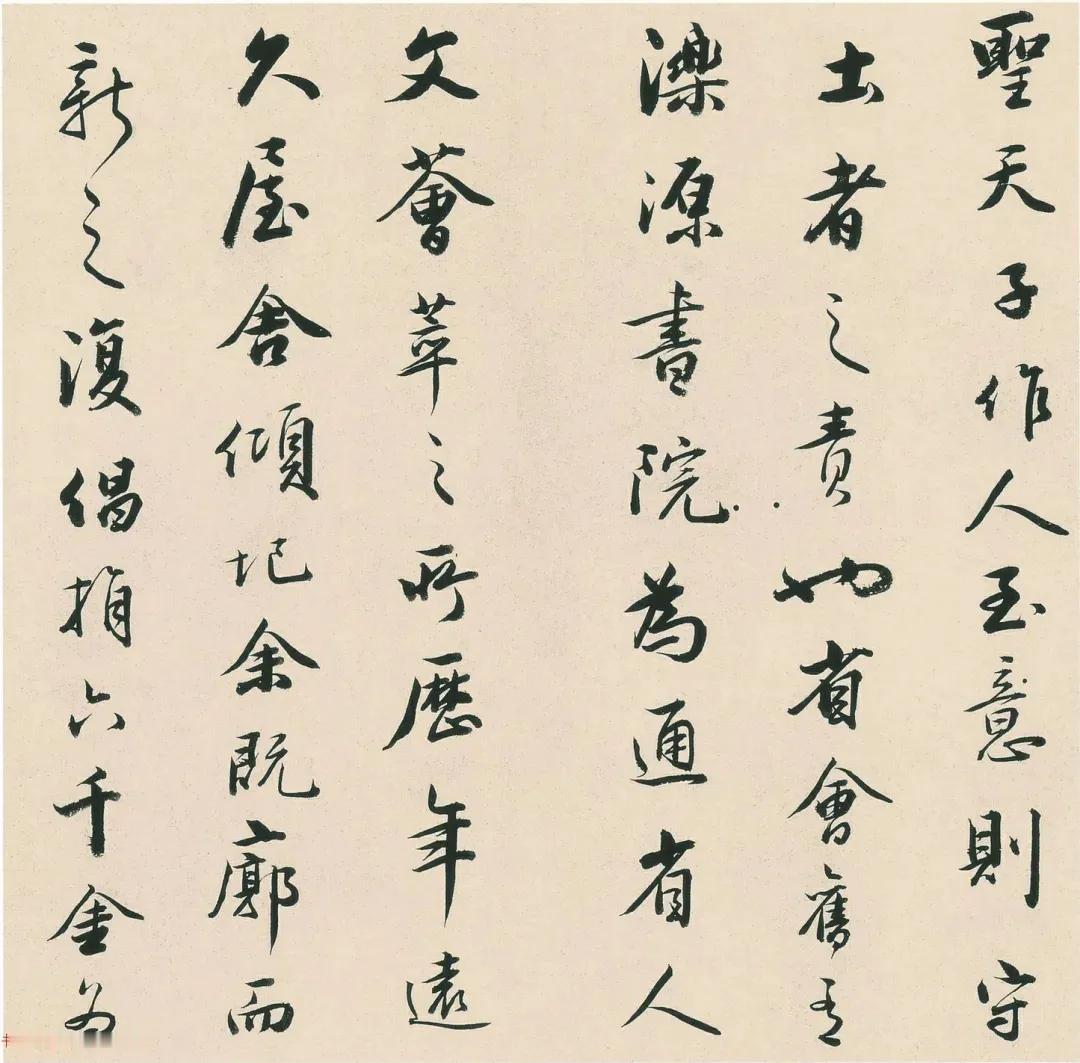 聖天子作人至意則守
土者之責也省會舊有
濼源書院為通省人
文薈萃之所歷年遠
久屋舍傾圮余既廓而
新之復倡捐六千金為